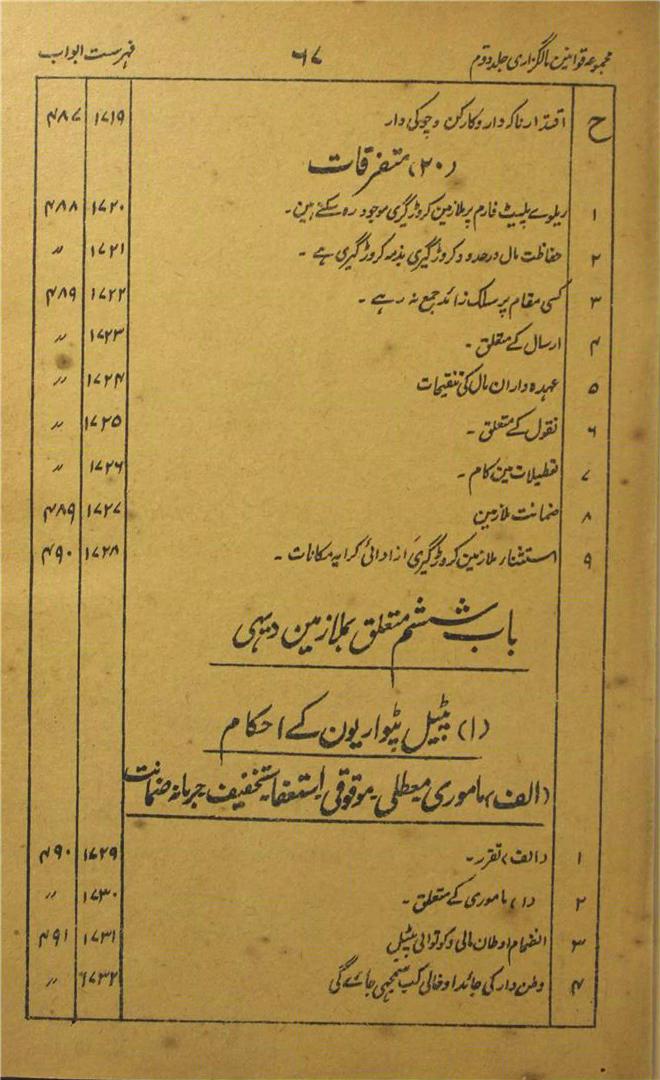 مجموعہ قوانین مالگزاری جلد دوم ۶۷ فہرست ابواب
ح اقتدار ناکردار و کارکن و چوکی دار ۱۷۱۹ ۴۸۷
(۲۰) متفرقات
۱ ریلوے پلیٹ فارم پر ملازمین کروڑ گیری موجود رہ سکتے ہین۔ ۱۷۲۰ ۴۸۸
۲ حفاظت مال در حدود کروڑ گیری بذمہ کروڑ گیری ہے ۔ ۱۷۲۱ ״
۳ کسی مقام پر سلک زائد جمع نہ رہے ۔ ۱۷۲۲ ۴۸۹
۴ ارسال کے متعلق ۔ ۱۷۲۳ ״
۵ عہدہ داران مال کی تنقیحات ۱۷۲۴ ״
۶ نقول کے متعلق ۔ ۱۷۲۵ ״
۷ تعطیلات مین کام ۔ ۱۷۲۶ ״
۸ ضمانت ملازمین ۱۷۲۷ ۴۸۹
۹ استثنار ملازمین کروڑ گیری از ادائی کرایہ مکانات ۔ ۱۷۲۸ ۴۹۰
باب ششم متعلق بملازمین دیہی
(۱) پٹیل پٹواریون کے احکام
(الف) ماموری معطلی۔ موقوفی۔ استعفا۔ تخفیف۔ جرمانہ ضمانت
۱ (الف) تقرر۔ ۱۷۲۹ ۴۹۰
۲ (۱) ماموری کے متعلق ۔ ۱۷۳۰ ״
۳ انضمام اوطان مالی و کوتوالی پٹیل ۱۷۳۱ ۴۹۱
۴ وطن دار کی جائداد خالی کب سمجھی جائے گی ۱۷۳۲ ״